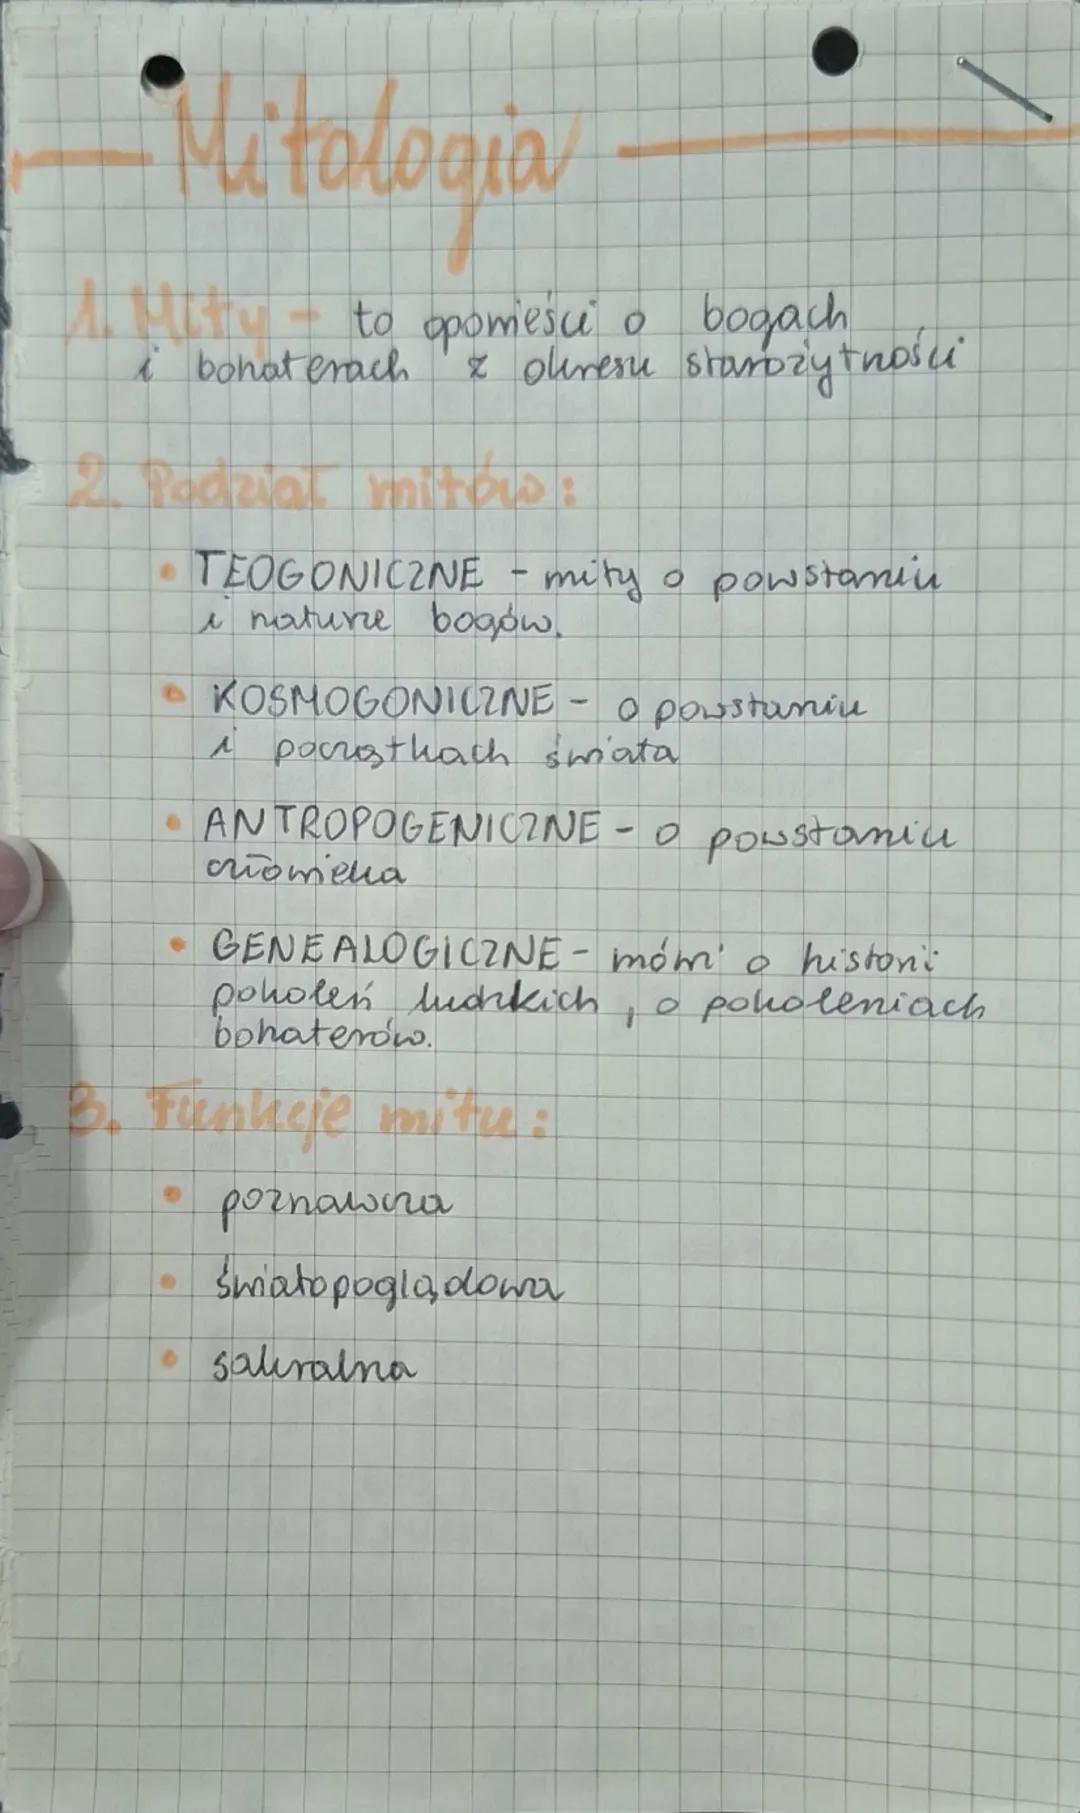 Mitologia
1. Mity - to opowieści o bogach
i bohaterach z okresu starożytności
2. Podział mitów:
• TEOGONICZNE - mity o powstaniu
i naturze bogów.
• KOSMOGONICZNE - o powstaniu
i początkach świata
• ANTROPOGENICZNE - o powstaniu
człowieka
• GENEALOGICZNE - mówi o historii
pokoleń ludzkich, o pokoleniach
bohaterów.
3. Funkcje mitu:
• poznawcza
• światopoglądowa
• sakralna